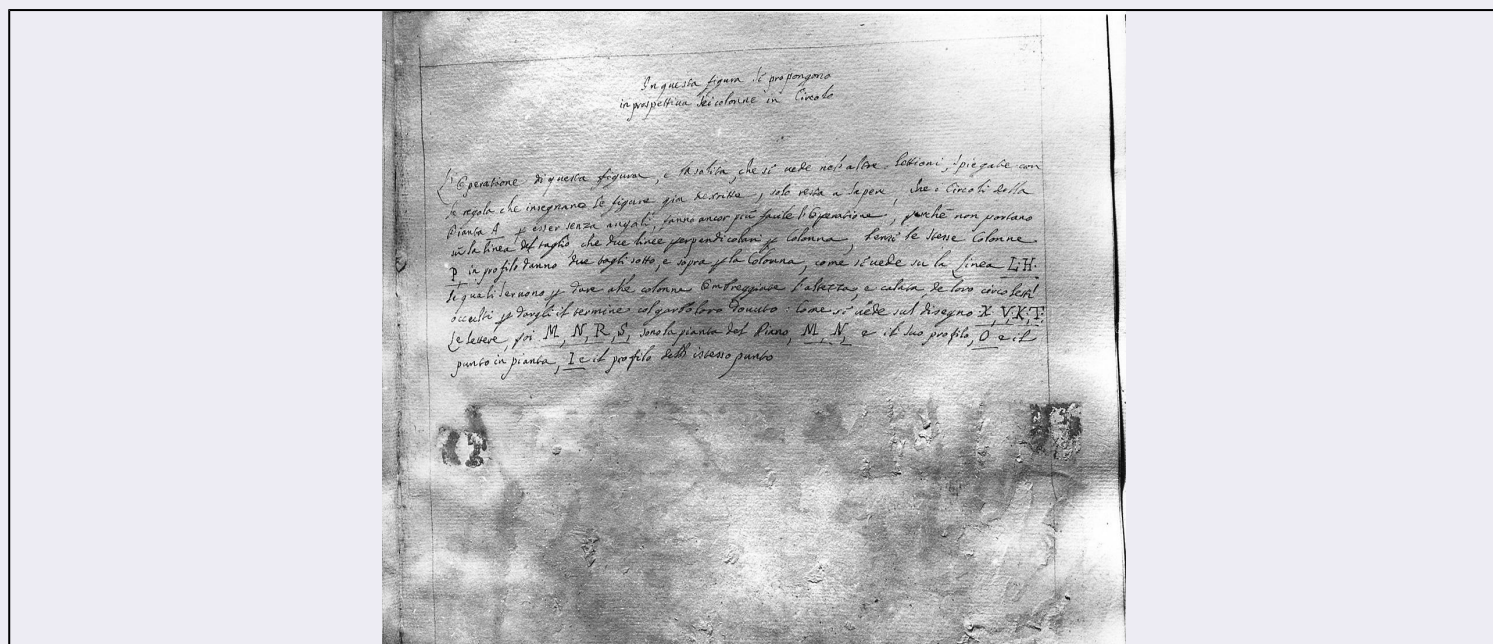 In questa figura si propongono
in prospettiva sei colonne in Circolo
L'Operatione di questa figura, e la solita, che si vede nell'altre Lettioni, spiegate con
le regole che insegnano le figure gia descritte, solo resta a saper, che i Circoli della
Pianta A p esser senza angoli, fanno ancor più facile l'Operatione, perche non portano
sù la linea del taglio che due linee perpendicolari p Colonna, bensi le stesse Colonne
P in profilo danno due tagli sotto, e sopra p la Colonna, come si vede su la Linea L H.
li quali servono p dare alle colonne l'altezza, e de loro circoletti
occulti p dargli il termine col garbo loro douuto: Come si vede sul disegno X, V, K, T.
Le lettere, poi M, N, R, S, sono la pianta del Piano, M, N, e il suo profilo, O e il
punto in pianta, I e il profilo dell istesso punto